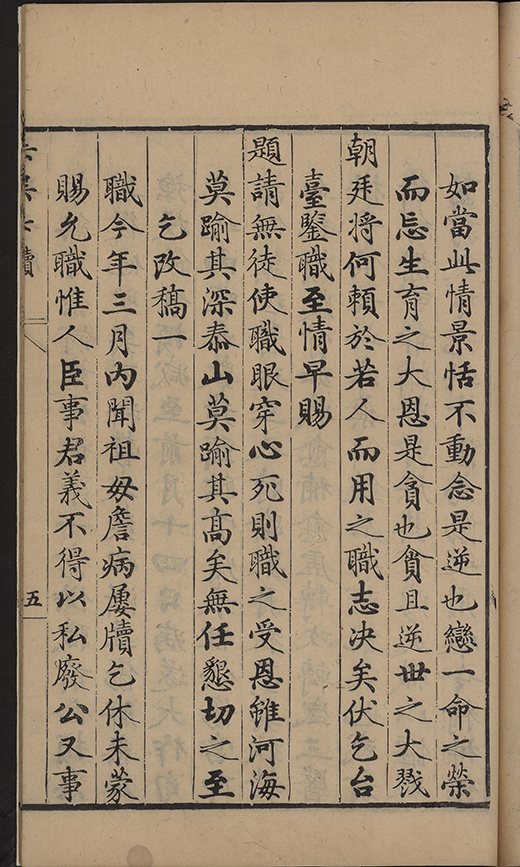 如當此情景恬不動念是逆也戀一命之榮
而忘生育之大恩是貪也貪且逆世之大戮
朝廷將何賴於若人而用之職志决矣伏乞台
臺鑒職至情早賜
題請無徒使職眼穿心死則職之受恩雖河海
莫踰其深泰山莫踰其高矣無任懇切之至
乞改稿一
職今年三月內聞祖母詹病屢牘乞休未蒙
賜允職惟人臣事君義不得以私廢公又事
牘
五